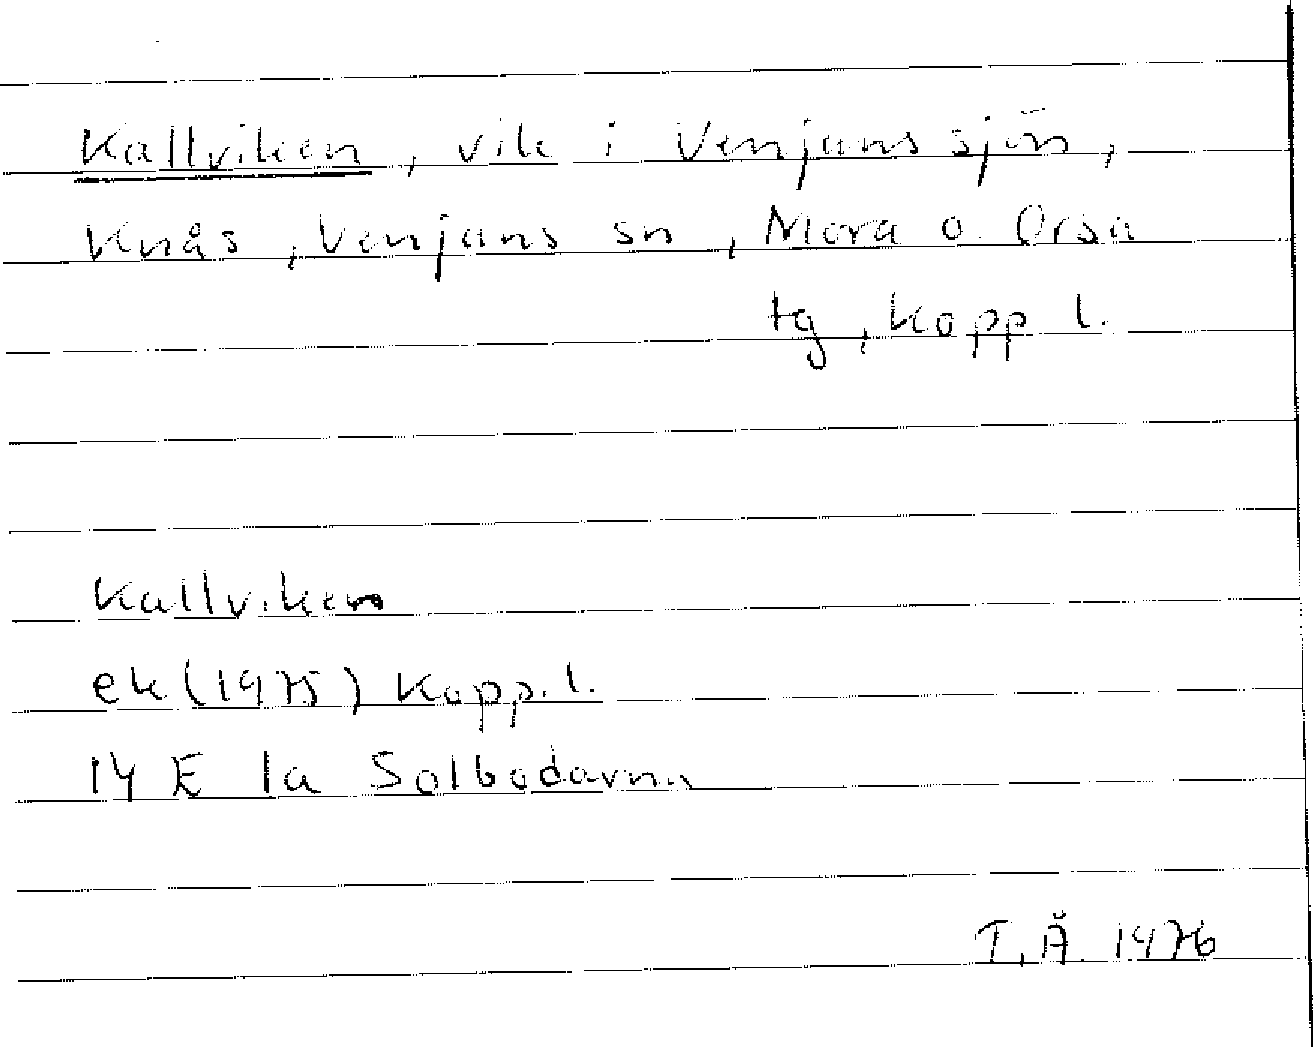 Kallviken, vik i Venjanssjön,
Knås, Venjans sn, Mora o. Orsa
tg, Kopp l.
Kallviken
ek (1975) Kopp. l.
14 E 1a Solbodarna
I. Å. 1976